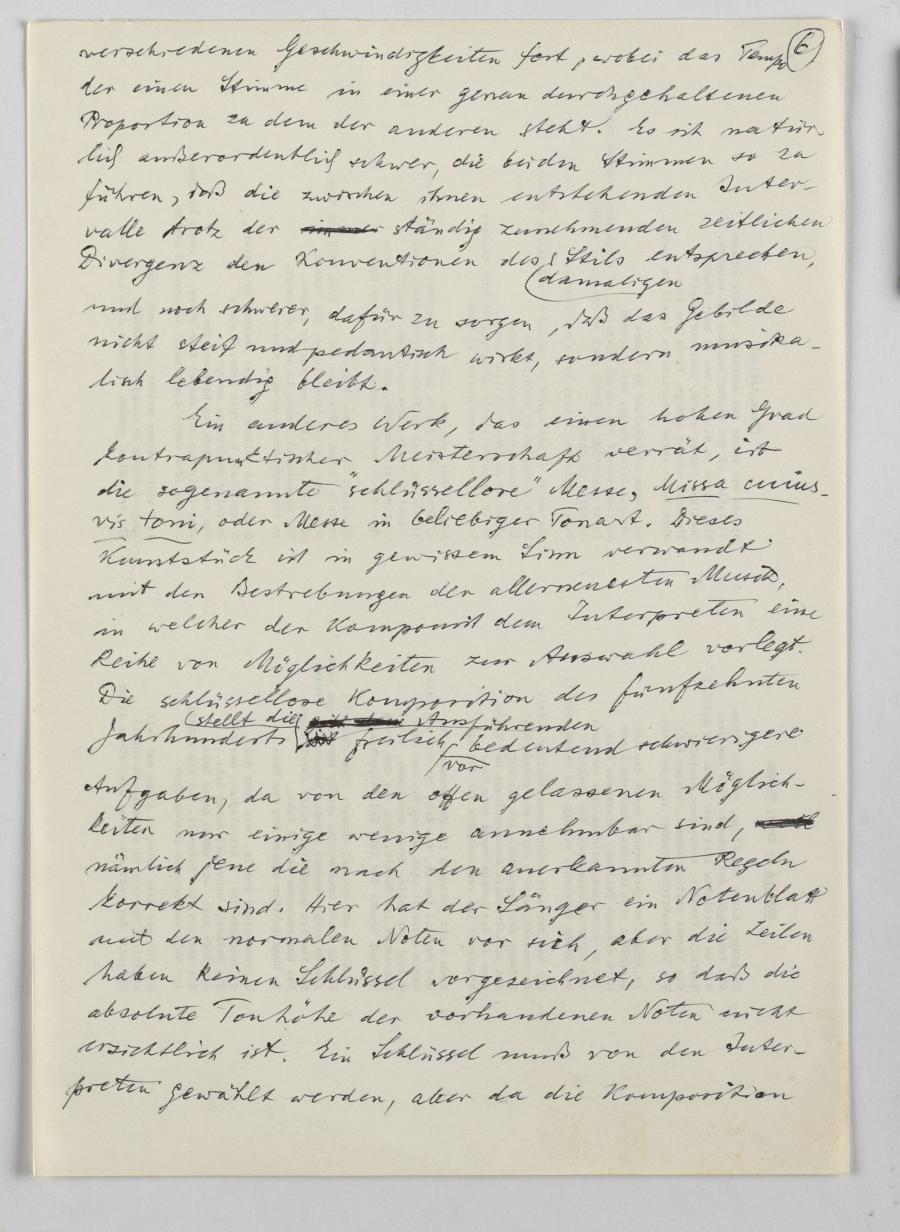 6
verschiedenen Geschwindigkeiten fort, wobei das Tempo
der einen Stimme in einer genau durchgehaltenen
Proportion zu dem der anderen steht. Es ist natür-
lich außerordentlich schwer, die beiden Stimmen so zu
führen, daß die zwischen ihnen entstehenden Inter-
valle trotz der immer ständig zunehmenden zeitlichen
Divergenz den Konventionen des Stils entsprechen,
damaligen
und noch schwerer, dafür zu sorgen, daß das Gebilde
nicht steif und pedantisch wirkt, sondern musika-
lisch lebendig bleibt.
Ein anderes Werk, das einen hohen Grad
kontrapunktischer Meisterschaft verrät, ist
die sogenannte "schlüssellose" Messe, Missa cuius-
vis toni, oder Messe in beliebiger Tonart. Dieses
Kunststück ist in gewissem Sinn verwandt
mit den Bestrebungen der allerneuesten Musik,
in welcher der Komponist dem Interpreten eine
Reihe von Möglichkeiten zur Auswahl vorlegt.
Die schlüssellose Komposition des fünfzehnten
stellt die Ausführenden
Jahrhunderts freilich bedeutend schwierigere
vor
Aufgaben, da von den offen gelassenen Möglich-
keiten nur einige wenige annehmbar sind,
nämlich jene die nach den anerkannten Regeln
korrekt sind. Hier hat der Sänger ein Notenblatt
mit den normalen Noten vor sich, aber die Zeilen
haben keinen Schlüssel vorgezeichnet, so daß die
absolute Tonhöhe der vorhandenen Noten nicht
ersichtlich ist. Ein Schlüssel muß von den Inter-
preten gewählt werden, aber da die Komposition